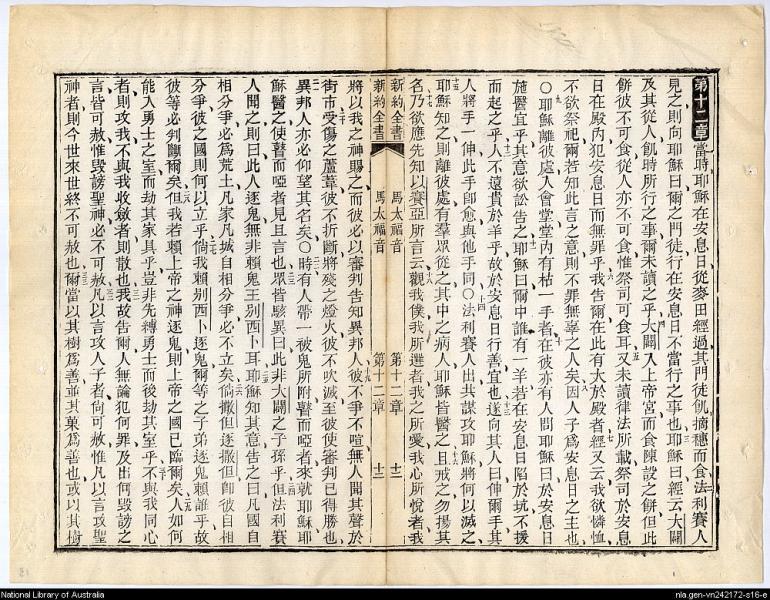 第十二章當時耶穌在安息日從麥田經過其門徒飢摘穗而食法利賽人
見之則向耶穌曰爾之門徒行在安息日不當行之事也耶穌曰經云大闢
及其從人飢時所行之事爾未讀之乎大闢入上帝宮而食陳設之餅但此
餅彼不可食從人亦不可食惟祭司可食耳又未讀律法所載祭司於安息
日在殿內犯安息日而無罪乎我告爾在此有大於殿者經又云我欲憐恤
不欲祭祀爾若知此言之意則不罪無辜之人矣因人子爲安息日之主也
○耶穌離彼處入會堂堂內有枯一手者在彼亦有人問耶穌曰於安息日
施醫宜乎其意欲訟告之耶穌曰爾中誰有一羊若在安息日陷於坑不援
而起之乎人不遠貴於羊乎故於安息日行善宜也遂向其人曰伸爾手其
人將手一伸此手即愈與他手同○法利賽人出共謀攻耶穌將何以滅之
耶穌知之則離彼處有羣眾從之其中之病人耶穌皆醫之且戒之勿揚其
名乃欲應先知以賽亞所言云觀我僕我所選者我之所愛我心所悅者我
新約全書 馬太福音 第十二章 十二
新約全書 馬太福音 第十二章 十二
將以我之神賜之而彼必以審判告知異邦人彼不爭不喧無人聞其聲於
街市受傷之蘆葦彼不折斷將殘之燈火彼不吹滅至彼使審判已得勝也
異邦人亦必仰望其名矣○時有人帶一被鬼所附瞽而啞者來就耶穌耶
穌醫之使瞽而啞者見且言也眾皆駭異曰此非大闢之子孫乎但法利賽
人聞之則曰此人逐鬼無非賴鬼王別西卜耳耶穌知其意告之曰凡國自
相分爭必爲荒土凡家凡城自相分爭必不立矣倘撒但逐撒但卽彼自相
分爭彼之國則何以立乎倘我賴別西卜逐鬼爾等之子弟逐鬼賴誰乎故
彼等必判斷爾矣但我若賴上帝之神逐鬼則上帝之國已臨爾矣人如何
能入勇士之室而劫其家具乎豈非先縛勇士而後劫其室乎不與我同心
者則攻我不與我收斂者則散也我故告爾人無論犯何罪及出何毀謗之
言皆可赦惟毀謗聖神必不可赦凡以言攻人子者尙可赦惟凡以言攻聖
神者則今世來世終不可赦也爾當以其樹爲善並其菓爲善也或以其樹
National Library of Australia
nla.gen-vn242172-s16-e